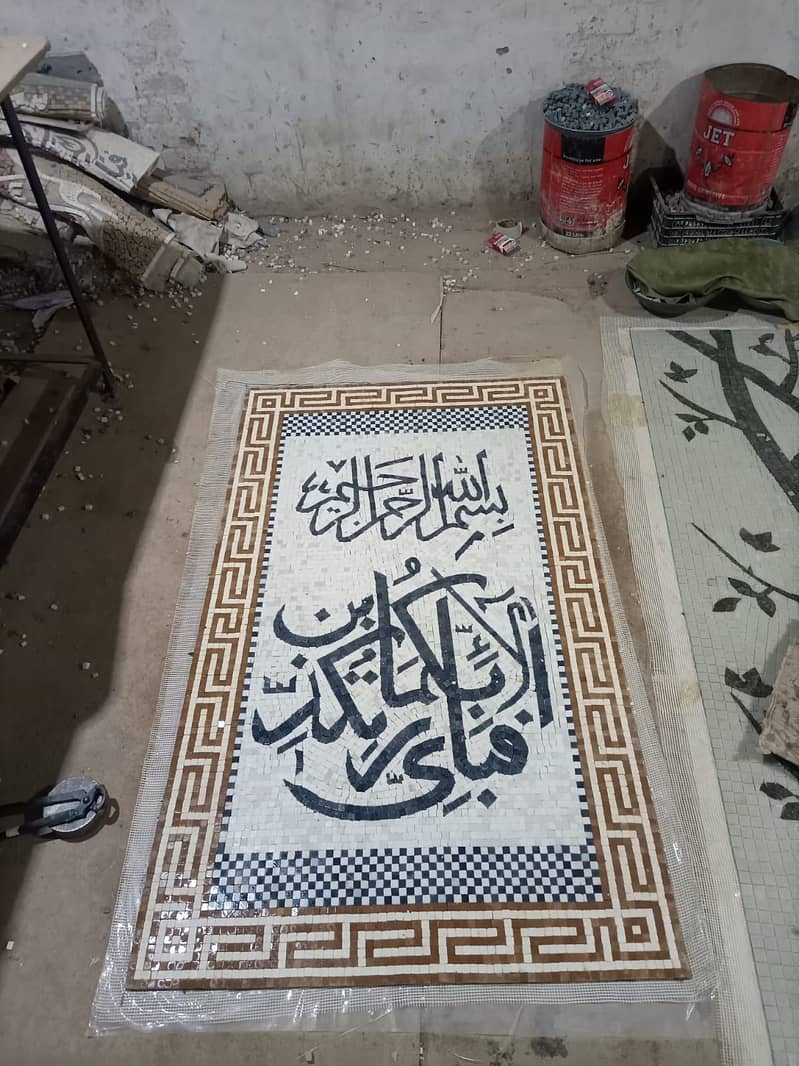 بسم الله الرحمن الرحيم
فبأي آلاء ربكما تكذبن
JET